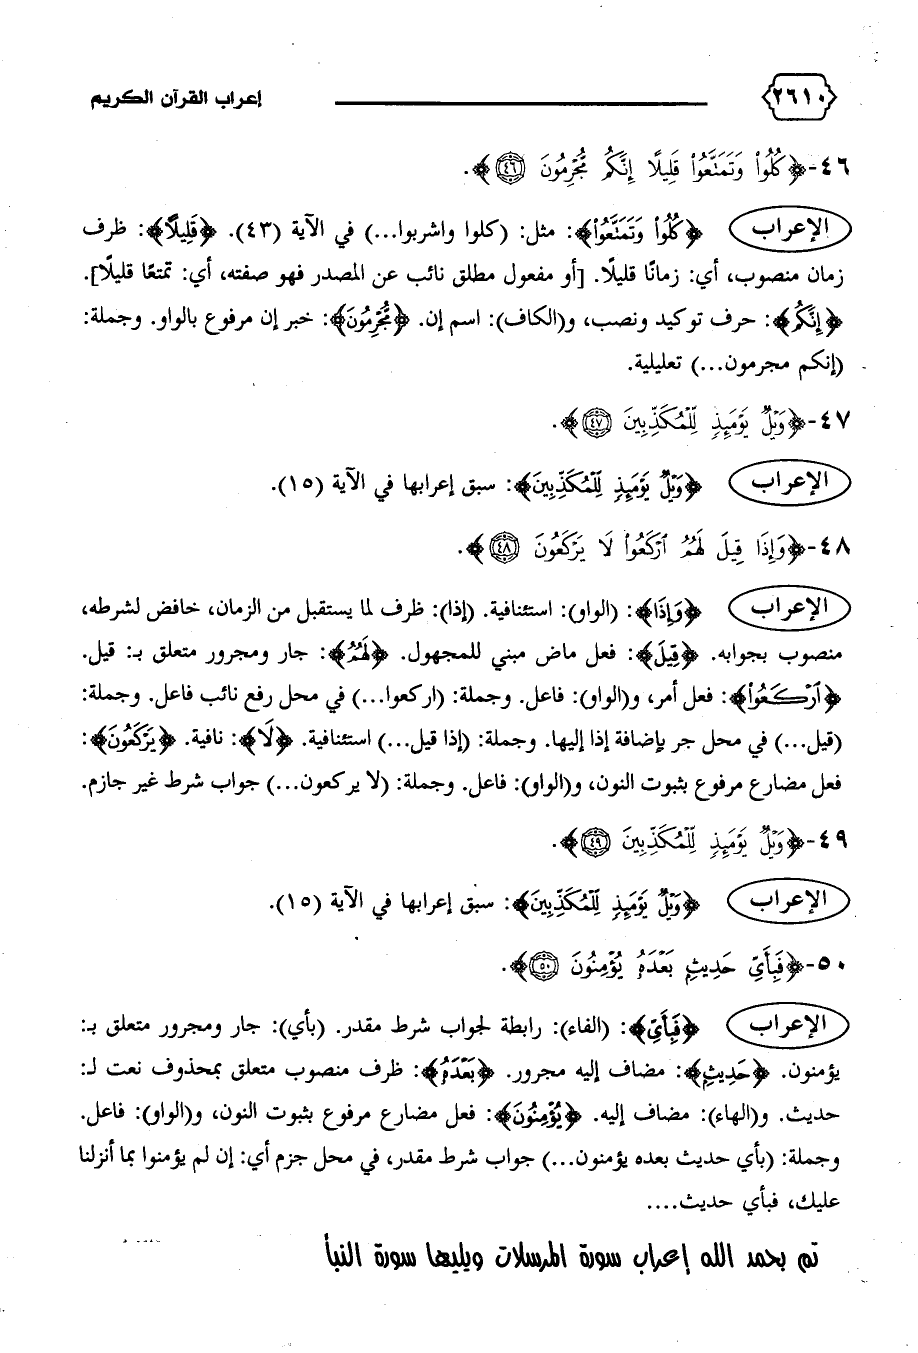 ٢٦١٠
إعراب القرآن الكريم
٤٦- ﴿كُلُواْ وَتَمَتَّعُواْ قَلِيلًا إِنَّكُم مُّجْرِمُونَ ٤٦﴾.
الإعراب ﴿كُلُواْ وَتَمَتَّعُواْ﴾: مثل: (كلوا واشربوا...) في الآية (٤٣). ﴿قَلِيلًا﴾: ظرف
زمان منصوب، أي: زمانًا قليلًا. [أو مفعول مطلق نائب عن المصدر فهو صفته، أي: تمتعًا قليلًا].
﴿إِنَّكُم﴾: حرف توكيد ونصب، و(الكاف): اسم إن. ﴿مُّجْرِمُونَ﴾: خبر إن مرفوع بالواو. وجملة:
(إنكم مجرمون...) تعليلية.
٤٧- ﴿وَيْلٌ يَوْمَئِذٍ لِّلْمُكَذِّبِينَ ٤٧﴾.
الإعراب ﴿وَيْلٌ يَوْمَئِذٍ لِّلْمُكَذِّبِينَ﴾: سبق إعرابها في الآية (١٥).
٤٨- ﴿وَإِذَا قِيلَ لَهُمُ ٱرْكَعُواْ لَا يَرْكَعُونَ ٤٨﴾.
الإعراب ﴿وَإِذَا﴾: (الواو): استئنافية. (إذا): ظرف لما يستقبل من الزمان، خافض لشرطه،
منصوب بجوابه. ﴿قِيلَ﴾: فعل ماض مبني للمجهول. ﴿لَهُمُ﴾: جار ومجرور متعلق بـ: قيل.
﴿ٱرْكَعُواْ﴾: فعل أمر، و(الواو): فاعل. وجملة: (اركعوا...) في محل رفع نائب فاعل. وجملة:
(قيل...) في محل جر بإضافة إذا إليها. وجملة: (إذا قيل...) استئنافية. ﴿لَا﴾: نافية. ﴿يَرْكَعُونَ﴾:
فعل مضارع مرفوع بثبوت النون، و(الواو): فاعل. وجملة: (لا يركعون...) جواب شرط غير جازم.
٤٩- ﴿وَيْلٌ يَوْمَئِذٍ لِّلْمُكَذِّبِينَ ٤٩﴾.
الإعراب ﴿وَيْلٌ يَوْمَئِذٍ لِّلْمُكَذِّبِينَ﴾: سبق إعرابها في الآية (١٥).
٥٠- ﴿فَبِأَيِّ حَدِيثٍ بَعْدَهُ يُؤْمِنُونَ ٥٠﴾.
الإعراب ﴿فَبِأَيِّ﴾: (الفاء): رابطة لجواب شرط مقدر. (بأي): جار ومجرور متعلق بـ:
يؤمنون. ﴿حَدِيثٍ﴾: مضاف إليه مجرور. ﴿بَعْدَهُ﴾: ظرف منصوب متعلق بمحذوف نعت لـ:
حديث. و(الهاء): مضاف إليه. ﴿يُؤْمِنُونَ﴾: فعل مضارع مرفوع بثبوت النون، و(الواو): فاعل.
وجملة: (بأي حديث بعده يؤمنون...) جواب شرط مقدر، في محل جزم أي: إن لم يؤمنوا بما أنزلنا
عليك، فبأي حديث....
تم بحمد الله إعراب سورة المرسلات ويليها سورة النبأ